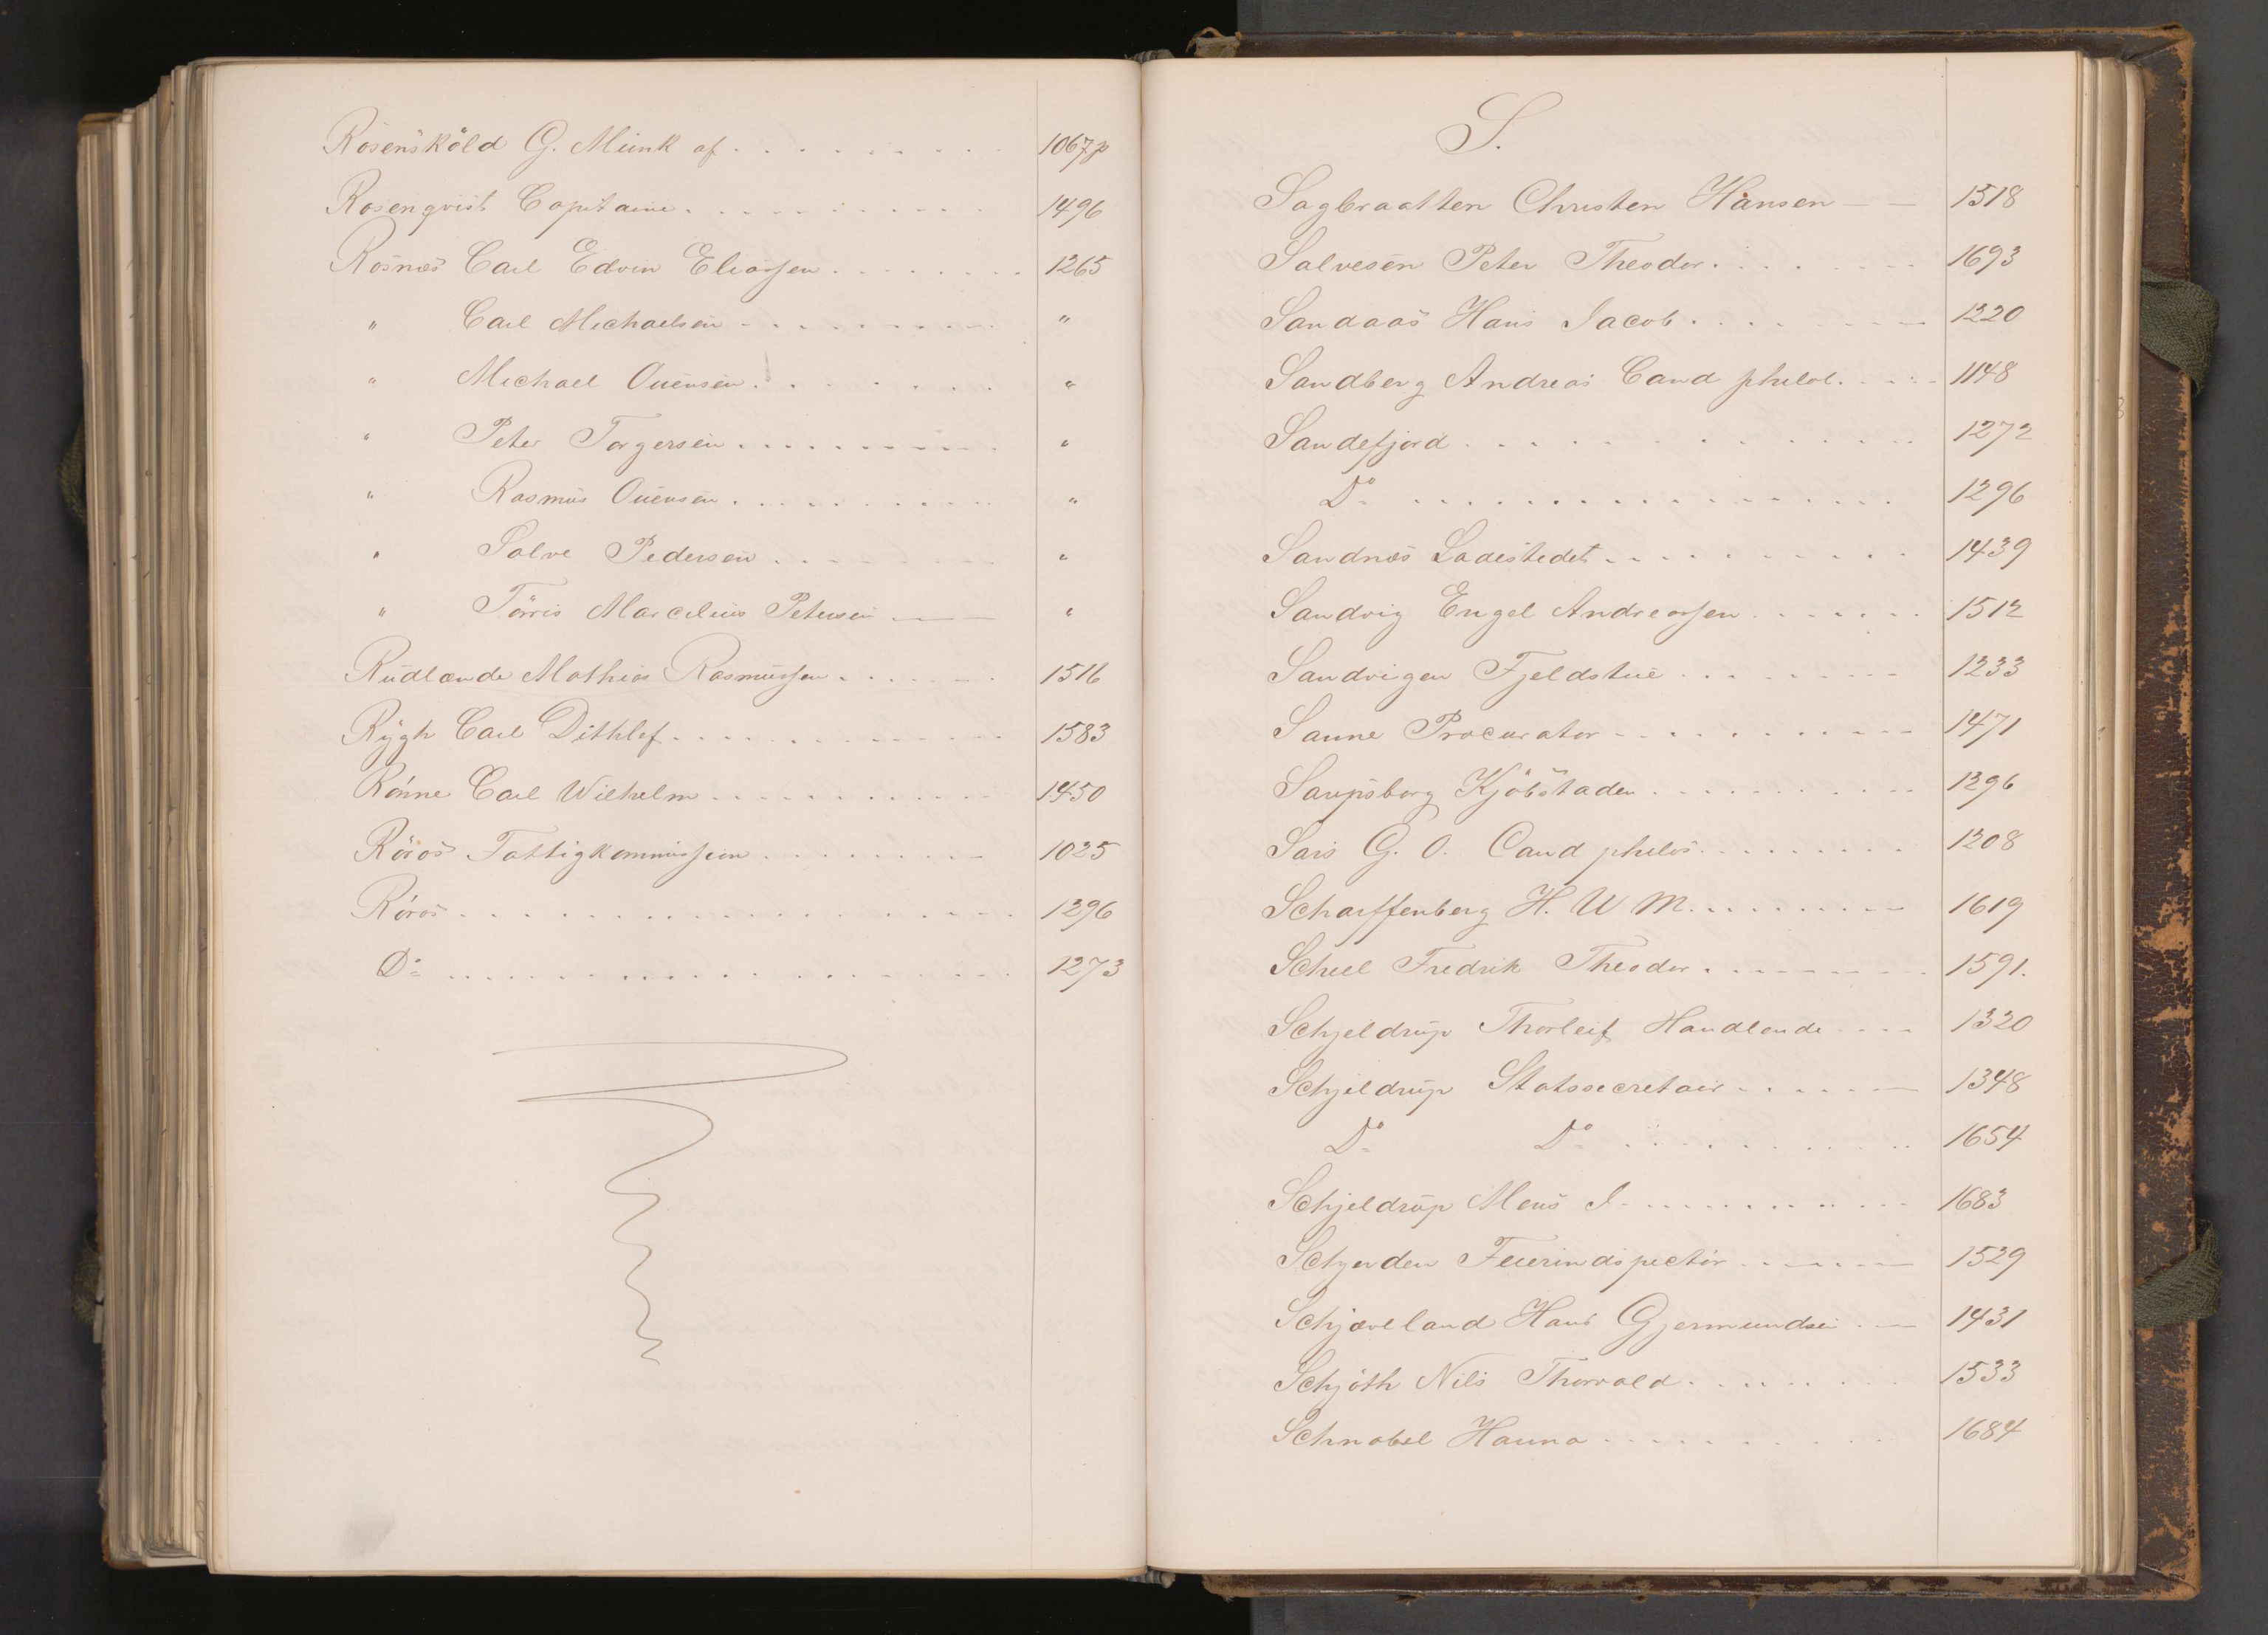 Rosensköld G. Munk af . . . . . . . . . . 1067p
Rosenqvist Capitaine . . . . . . . . . . 1496
Rosnæs Carl Edvin Eliassen . . . . . . . . 1265
" Carl Michaelsen . . . . . . . . . "
" Michael Ouensen . . . . . . . . "
" Peter Torgersen . . . . . . . . . "
" Rasmus Ouensen . . . . . . . . . "
" Salve Pedersen . . . . . . . . "
" Törris Marcelius Petersen — "
Rudlande Mathias Rasmussen . . . . . . 1516
Rygh Carl Dithlef . . . . . . . . . . . . 1583
Rónne Carl Wilhelm . . . . . . . . . . . 1450
Röros Fattigkommission . . . . . . . . . 1025
Róros . . . . . . . . . . . . . . . . . 1296
Do . . . . . . . . . . . . . . . . . 1273
S.
Sagbraatten Christen Hansen — — 1518
Salvesen Peter Theodor . . . . . . . 1693
Sandaas Hans Jacob . . . . . . . . 1220
Sandberg Andreas Cand philol. . . . . 1148
Sandefjord . . . . . . . . . . . . . . 1272
Do . . . . . . . . . . . . . . . . 1296
Sandnæs Ladestedet . . . . . . . . . . 1439
Sandvig Engel Andreassen . . . . . . . 1512
Sandvigen Fjeldstue . . . . . . . . . 1233
Sanne Procurator . . . . . . . . . . . 1471
Sarpsborg Kjöbstaden . . . . . . . . . . 1296
Sars G. O. Cand philos . . . . . . . . . 1208
Scharffenberg H. W M. . . . . . . . . 1619
Scheel Fredrik Theodor . . . . . . . . 1591.
Schjeldrup Thorleif Handlende . . . . 1320
Schjeldrup Statssecretair . . . . . . . 1348
Do Do . . . . . . . . . . . 1654
Schjeldrup Mens J . . . . . . . . . . . 1683
Schjerden Feierindspectör . . . . . . . 1529
Schjæveland Hans Gjermundsen . — 1431
Schjöth Nils Thorvald . . . . . . . . 1533
Schnabel Hanna . . . . . . . . . . 1684